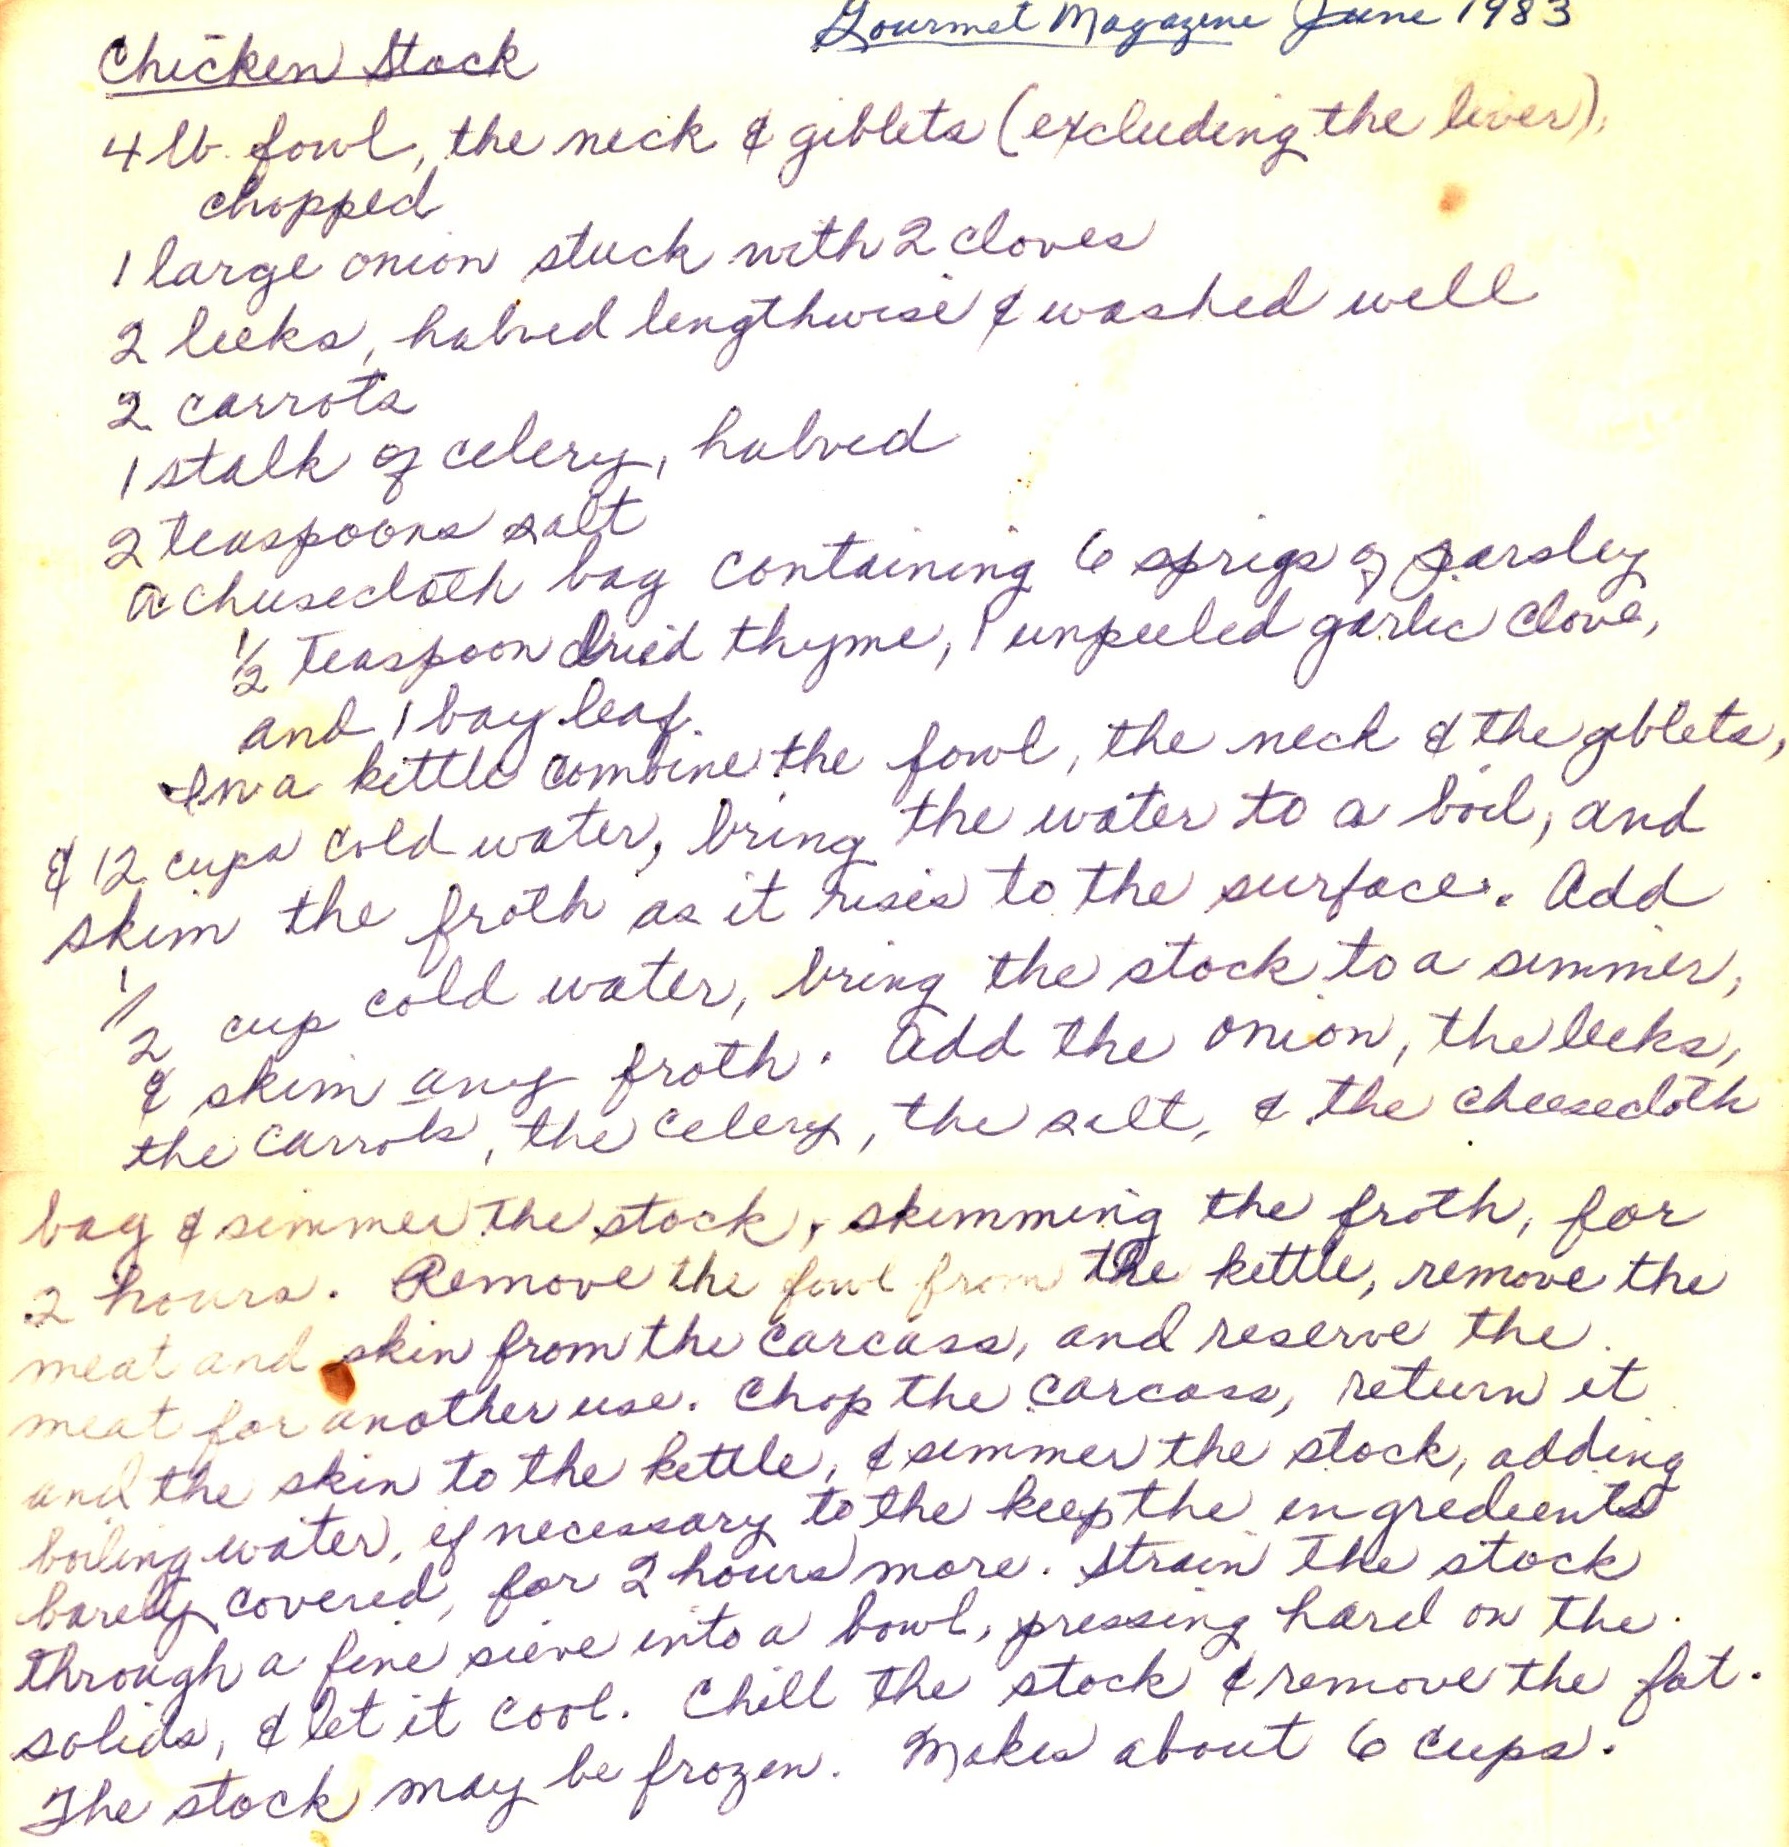 Gourmet Magazine June 1983
Chicken Stock
4 lb. fowl, the neck & giblets (excluding the liver),
chopped
1 large onion stuck with 2 cloves
2 leeks, halved lengthwise & washed well
2 carrots
1 stalk of celery, halved
2 teaspoons salt
a cheesecloth bag containing 6 sprigs of parsley
1/2 teaspoon dried thyme, 1 unpeeled garlic clove,
and 1 bay leaf.
In a kettle combine the fowl, the neck & the giblets,
& 12 cups cold water, bring the water to a boil, and
skim the froth as it rises to the surface. Add
1/2 cup cold water, bring the stock to a simmer,
& skim any froth. Add the onion, the leeks,
the carrots, the celery, the salt, & the cheesecloth
bag & simmer the stock, skimming the froth, for
2 hours. Remove the fowl from the kettle, remove the
meat and skin from the carcass, and reserve the
meat for another use. Chop the carcass, return it
and the skin to the kettle, & simmer the stock, adding
boiling water, if necessary to the keep the ingredients
barely covered, for 2 hours more. Strain the stock
through a fine sieve into a bowl, pressing hard on the
solids, & let it cool. Chill the stock & remove the fat.
The stock may be frozen. Makes about 6 cups.